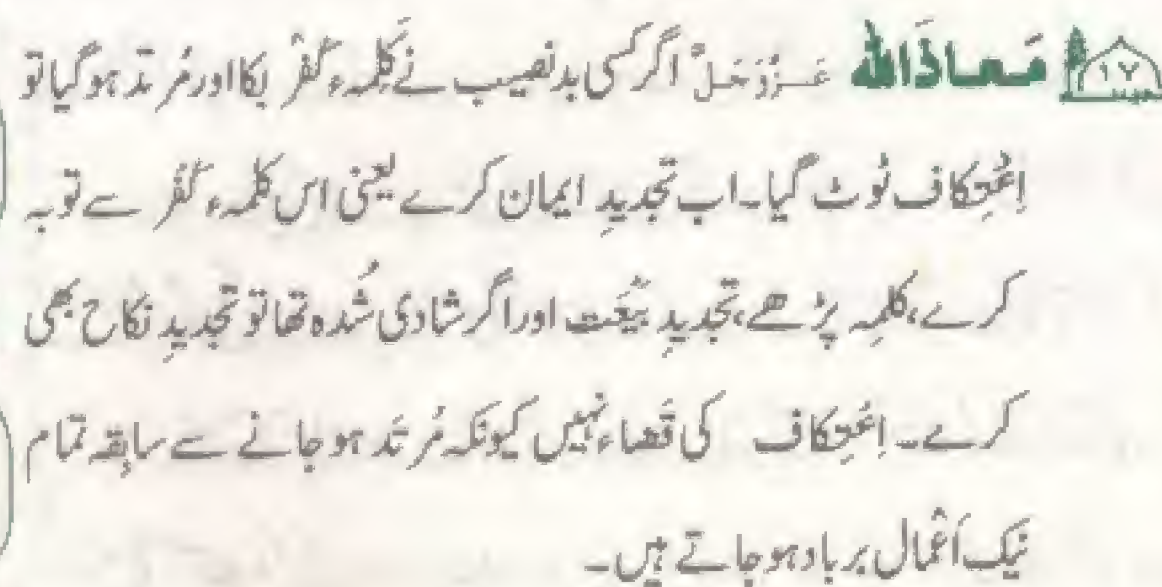 ۱۷ مَعاذَاللہ عَزَّوَجَلَّ اگر کسی بدنصیب نے کَلِمہء کُفْر بکا اور مُرتد ہوگیا تو
اِعْتِکاف ٹوٹ گیا۔ اب تَجدیدِ ایمان کرے یعنی اس کلمہء کُفْر سے توبہ
کرے، کلمِہ پڑھے، تَجدیدِ بَیْعَت اور اگر شادی شُدہ تھا تو تَجدیدِ نکاح بھی
کرے۔ اِعْتِکاف کی قَضاء نہیں کیونکہ مُرتَد ہوجانے سے سابِقہ تمام
نیک اَعْمال برباد ہوجاتے ہیں۔